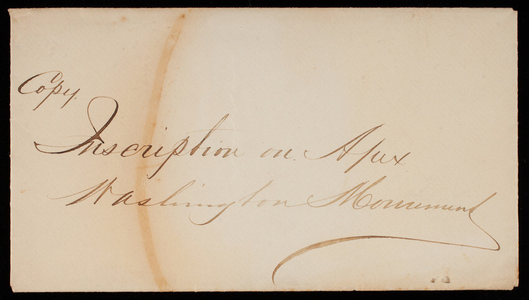 Copy.
Inscription on Apex
Washington Monument